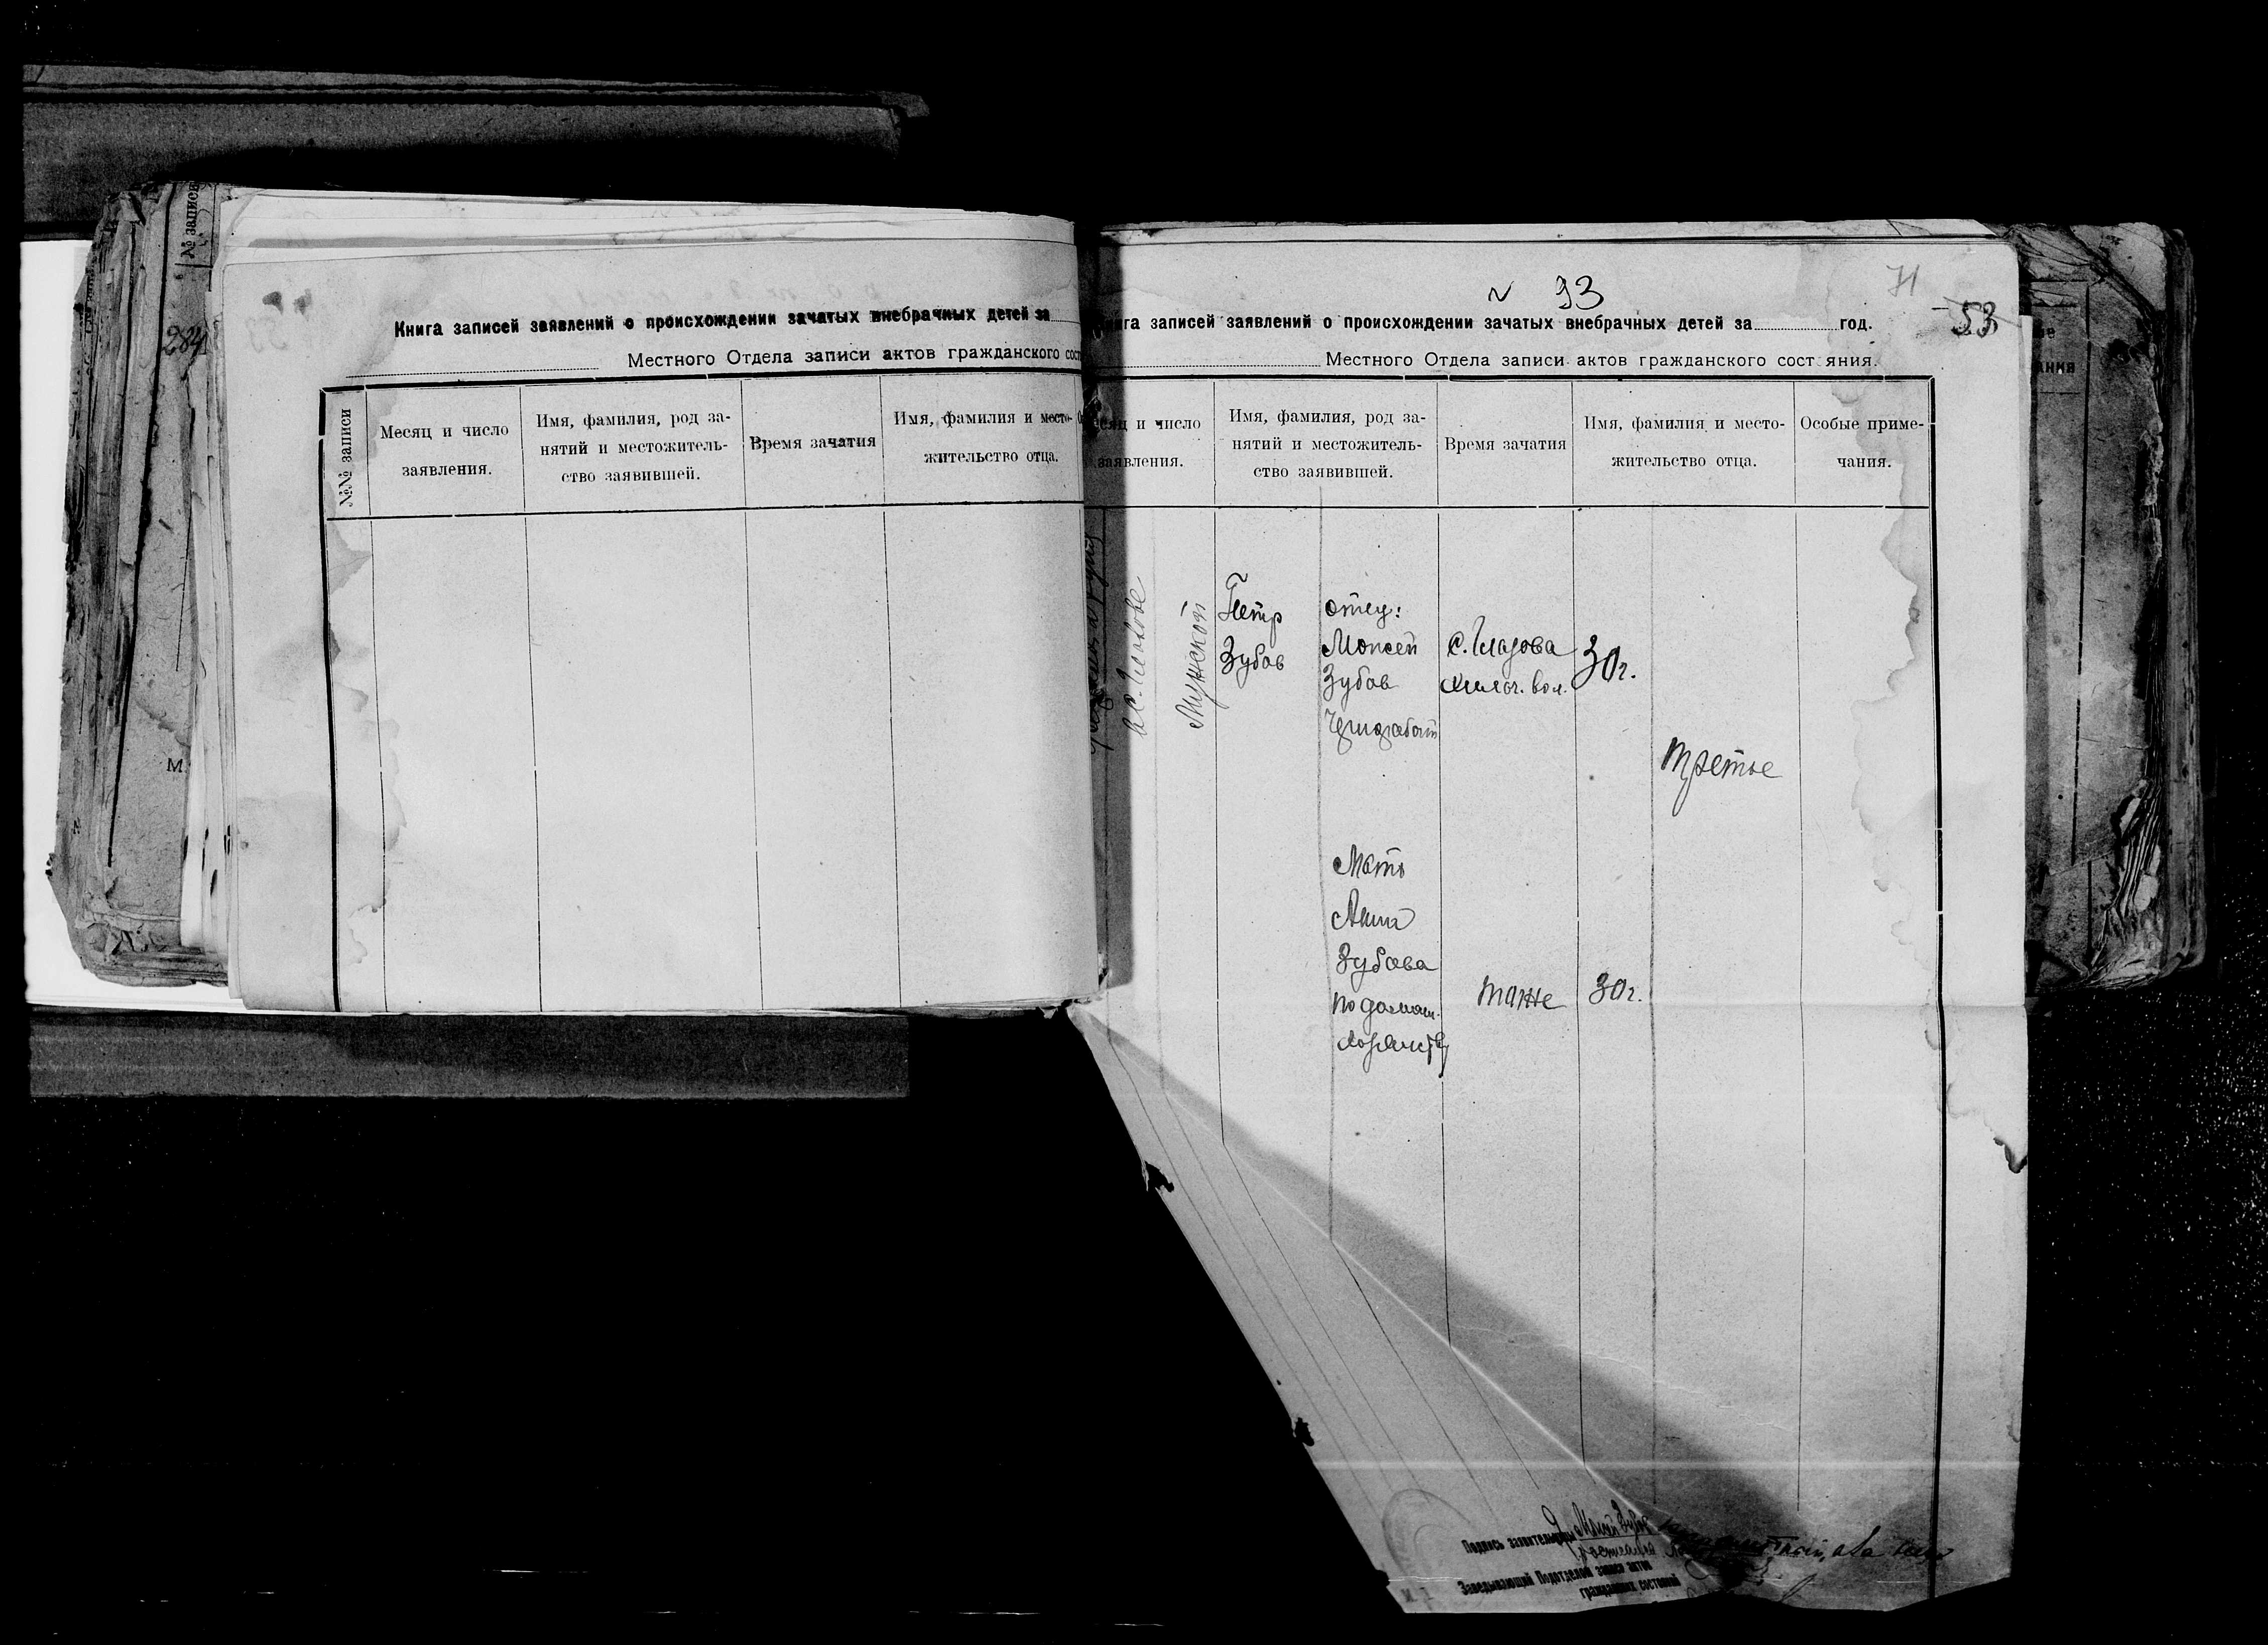 № записи
284
М.
Книга записей заявлений о происхождении зачатых внебрачных детей за
Местного Отдела записи актов гражданского сост
№№ записи
Месяц и число
заявления.
Имя, фамилия, род за-
нятий и местожитель-
ство заявившей.
Время зачатия
Имя, фамилия и место-
жительство отца.
N 93
71
53
нига записей заявлений о происхождении зачатых внебрачных детей за год.
Местного Отдела записи актов гражданского сост яния.
есяц и число
заявления.
Имя, фамилия, род за-
нятий и местожитель-
ство заявившей.
Время зачатия
Имя, фамилия и место-
жительство отца.
Особые приме-
чания.
Мужской
Петр
Зубов
отец:
Моисей
Зубов
С. Глазова
вол.
30 г.
третье
Мать
Анна
Зубова
по домаш.
хозяйству
тоже
30 г.
Подпись заявителя
Зубов
Заведывающий Подотделом записи актов
гражданских состояний